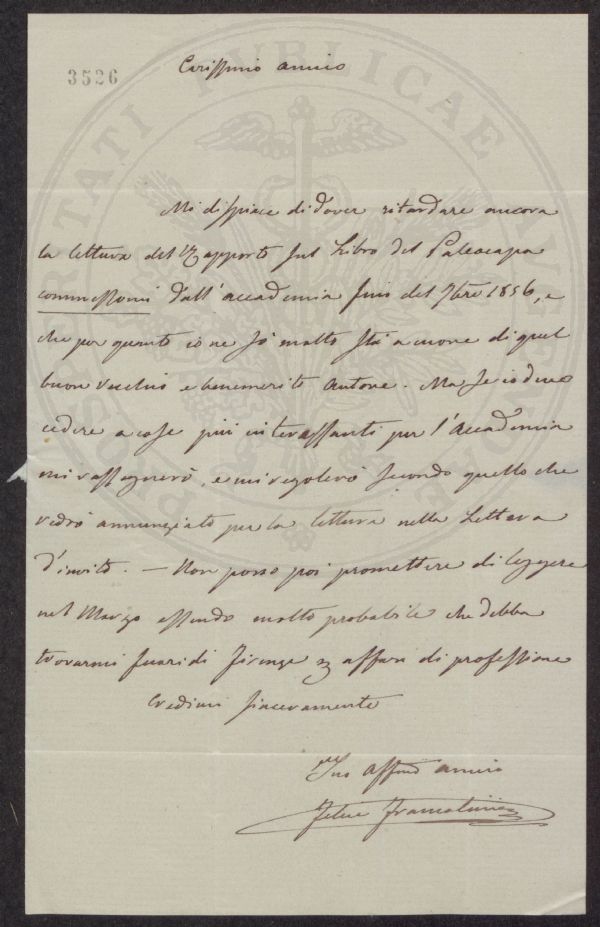 3526
Carissimo amico
Mi dispiace di dover ritardare ancora
la lettura del Rapporto sul Libro del Paleocapa
commessomi dall'accademia fino del 7bre 1856, e
che per quanto io ne so molto sta a cuore di quel
buon vecchio e benemerito autore. Ma se io devo
cedere a cose più interessanti per l'Accademia
mi rassegnerò, e mi regolerò secondo quello che
vedrò annunziato per la lettura nella Lettera
d'invito. — Non posso poi promettere di leggere
nel Marzo essendo molto probabile che debba
trovarmi fuori di Firenze affari di professione
Credimi sinceramente
Tuo affmo amico
Felice Francolini
PROSPERITATI PUBLICAE AUGENDAE